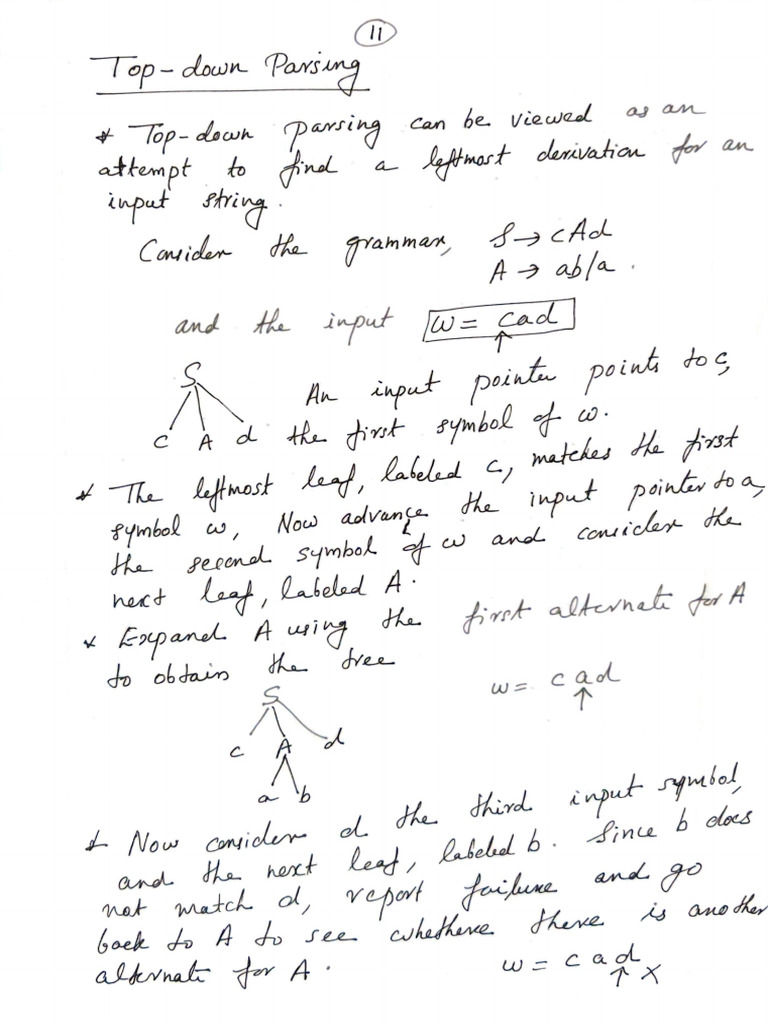 11
Top-down Parsing
* Top-down parsing can be viewed as an
attempt to find a leftmost derivation for an
input string.
Consider the grammar, S → cAd
A → ab/a .
and the input w = cad
↑
S
An input pointer points to c,
c A d the first symbol of w.
* The leftmost leaf, labeled c, matches the first
symbol w, Now advance the input pointer to a,
the second symbol of w and consider the
next leaf, labeled A.
* Expand A using the first alternate for A
to obtain the tree
w = cad
↑
S
c A d
a b
* Now consider d the third input symbol,
and the next leaf, labeled b. Since b does
not match d, report failure and go
back to A to see whethere there is another
alternate for A.
w = cad
↑ x